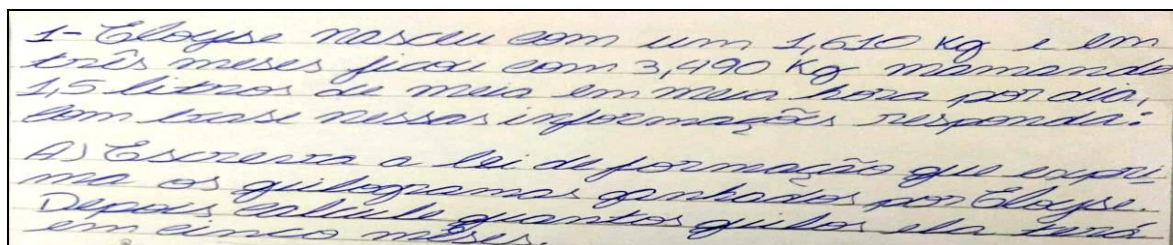 1- Eloyse nasceu com um 1,610 Kg e em
três meses ficou com 3,490 Kg mamando
1,5 litros de meia em meia hora por dia,
com base nessas informações responda:
A) Escreva a lei de formação que expri-
ma os quilogramas ganhados por Eloyse.
Depois calcule quantos quilos ela terá
em cinco meses.